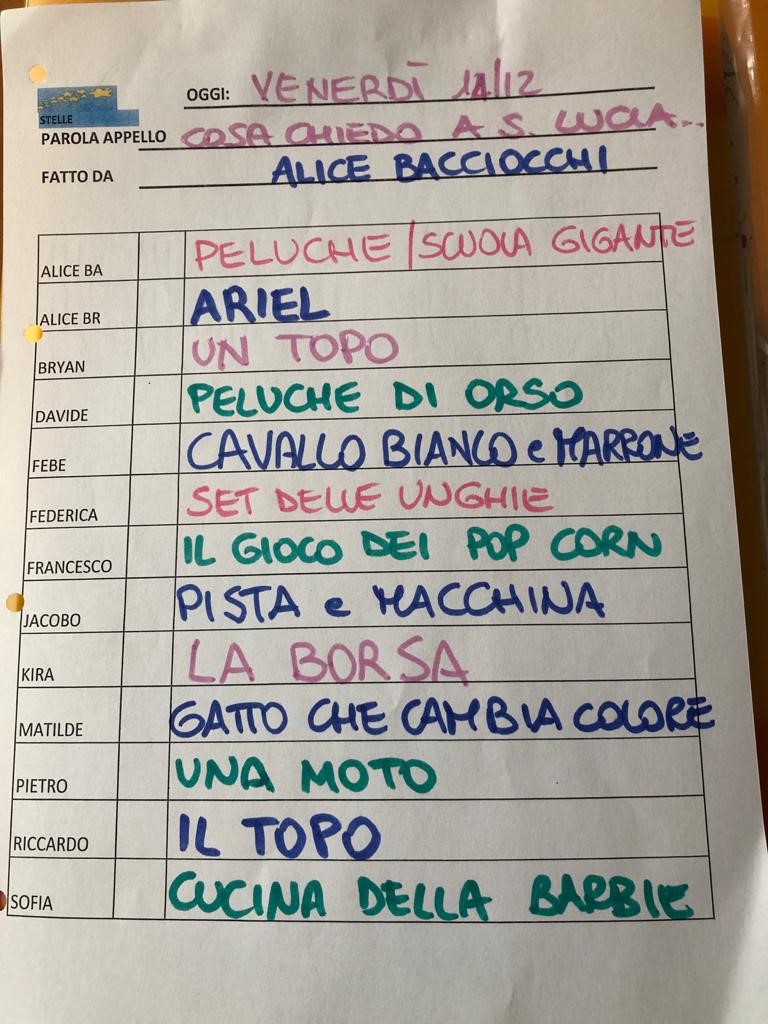 OGGI: VENERDÌ 11/12
STELLE
PAROLA APPELLO COSA CHIEDO A S. LUCIA...
FATTO DA ALICE BACCIOCCHI
ALICE BA PELUCHE / SCUOLA GIGANTE
ALICE BR ARIEL
BRYAN UN TOPO
DAVIDE PELUCHE DI ORSO
FEBE CAVALLO BIANCO e MARRONE
FEDERICA SET DELLE UNGHIE
FRANCESCO IL GIOCO DEI POP CORN
JACOBO PISTA e MACCHINA
KIRA LA BORSA
MATILDE GATTO CHE CAMBIA COLORE
PIETRO UNA MOTO
RICCARDO IL TOPO
SOFIA CUCINA DELLA BARBIE